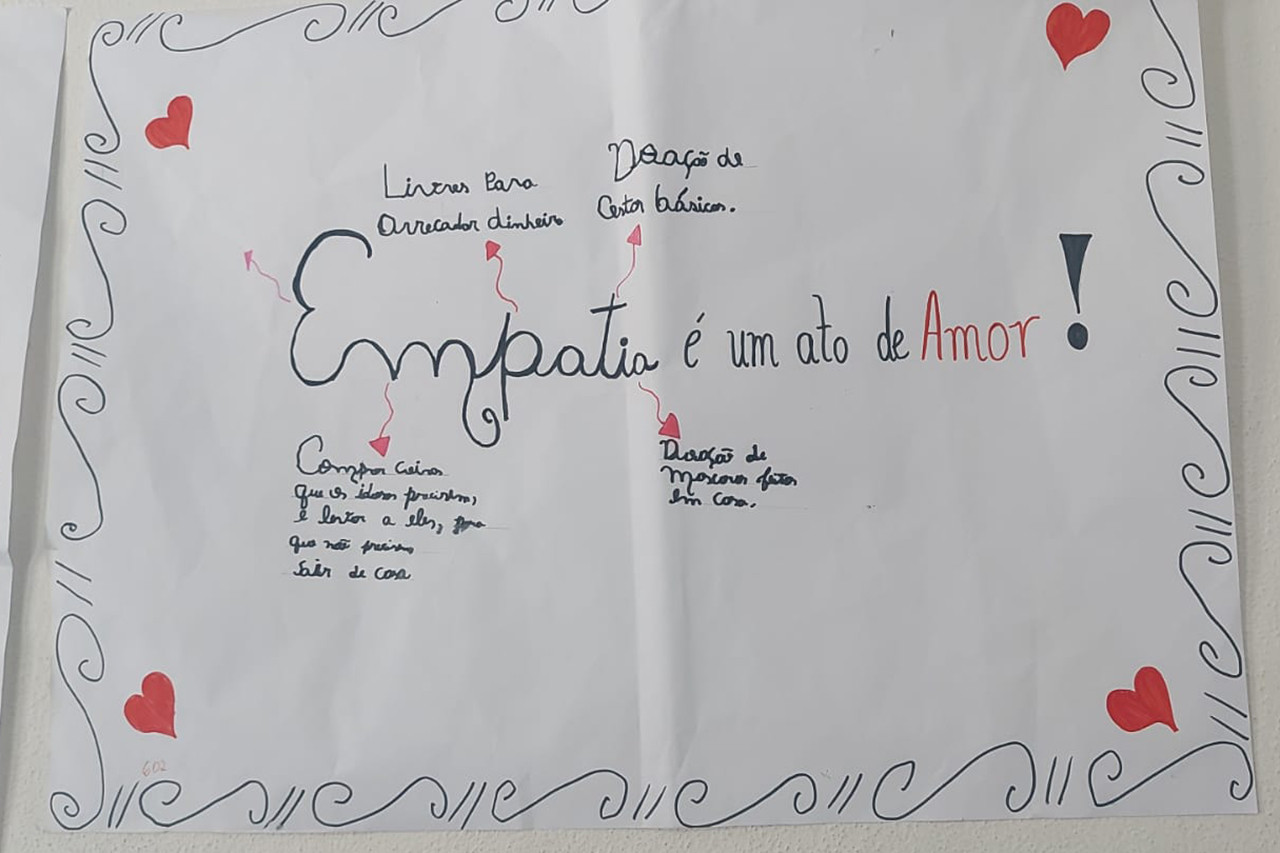 Doação de
Cestas básicas.
Lives Para
Arrecadar dinheiro
Empatia é um ato de Amor!
Comprar Coisas
que os idosos precisem,
e levar a eles, para
que não precisem
Sair de casa
Doação de
Máscaras feitas
em casa.
602